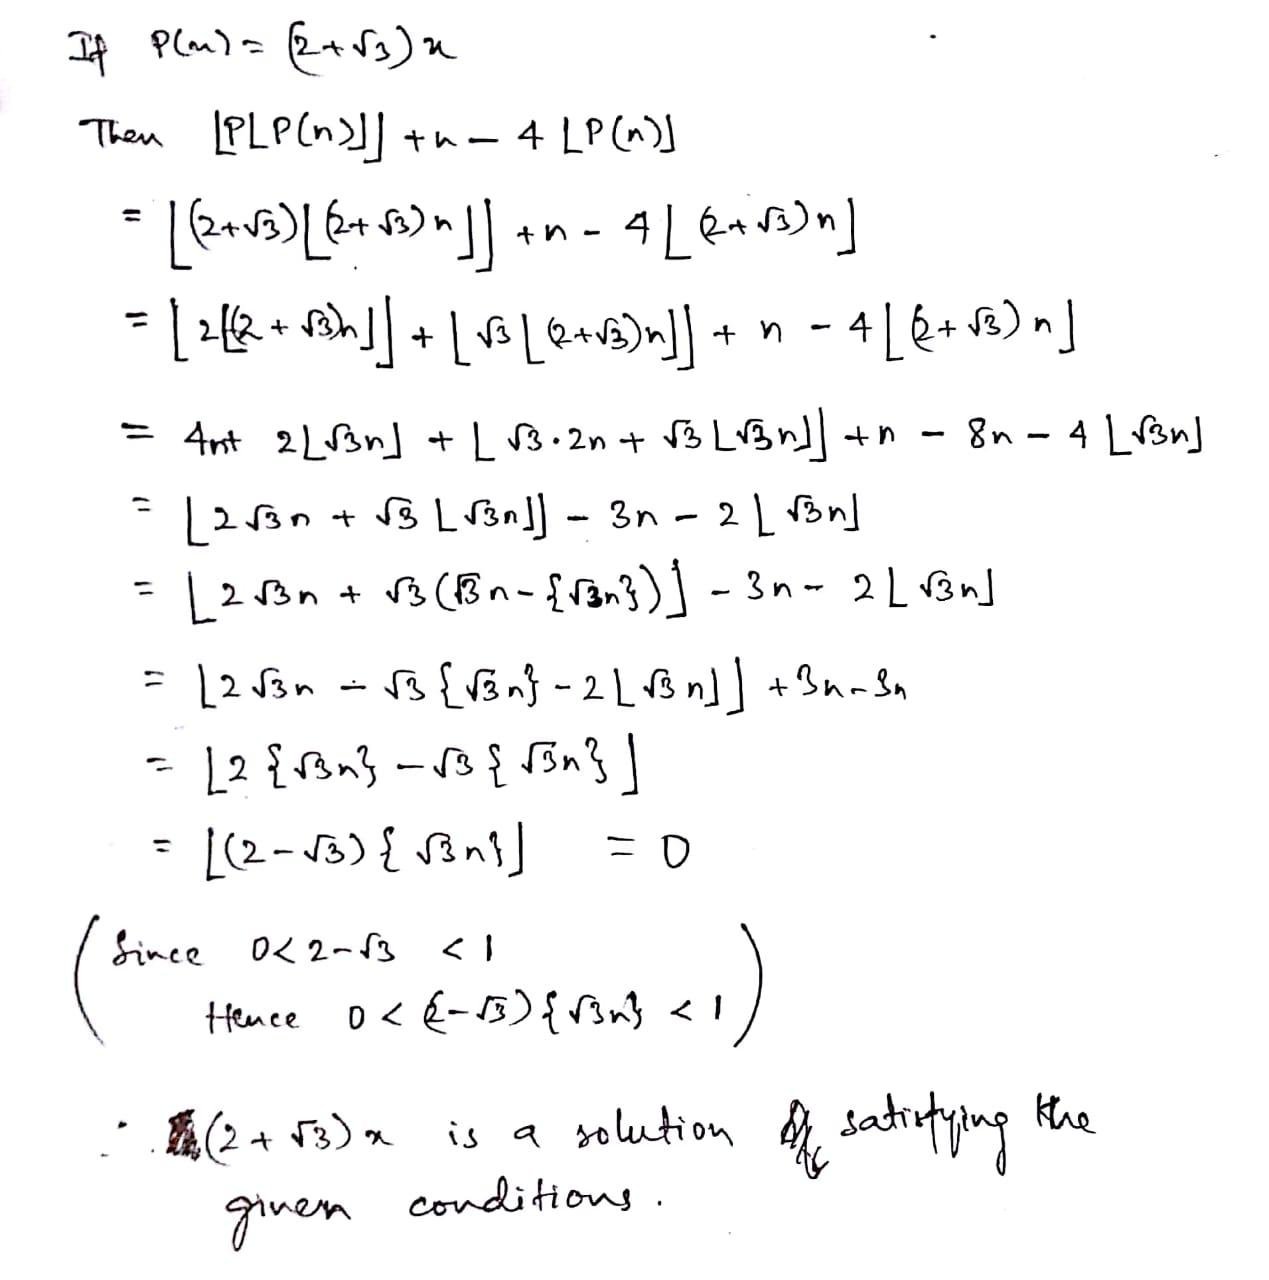 If P(x) = (2+√3)x
Then ⌊P⌊P(n)⌋⌋ + n − 4⌊P(n)⌋
= ⌊(2+√3)⌊(2+√3)n⌋⌋ + n − 4⌊(2+√3)n⌋
= ⌊2⌊(2+√3)n⌋⌋ + ⌊√3⌊(2+√3)n⌋⌋ + n − 4⌊(2+√3)n⌋
= 4n+ 2⌊√3n⌋ + ⌊√3·2n + √3⌊√3n⌋⌋ + n − 8n − 4⌊√3n⌋
= ⌊2√3n + √3⌊√3n⌋⌋ − 3n − 2⌊√3n⌋
= ⌊2√3n + √3(√3n − {√3n})⌋ − 3n − 2⌊√3n⌋
= ⌊2√3n − √3{√3n} − 2⌊√3n⌋⌋ + 3n − 3n
= ⌊2{√3n} − √3{√3n}⌋
= ⌊(2−√3){√3n}⌋ = 0
(Since 0<2−√3 <1
Hence 0 < (2−√3){√3n} < 1)
∴ (2+√3)x is a solution satisfying the
given conditions.